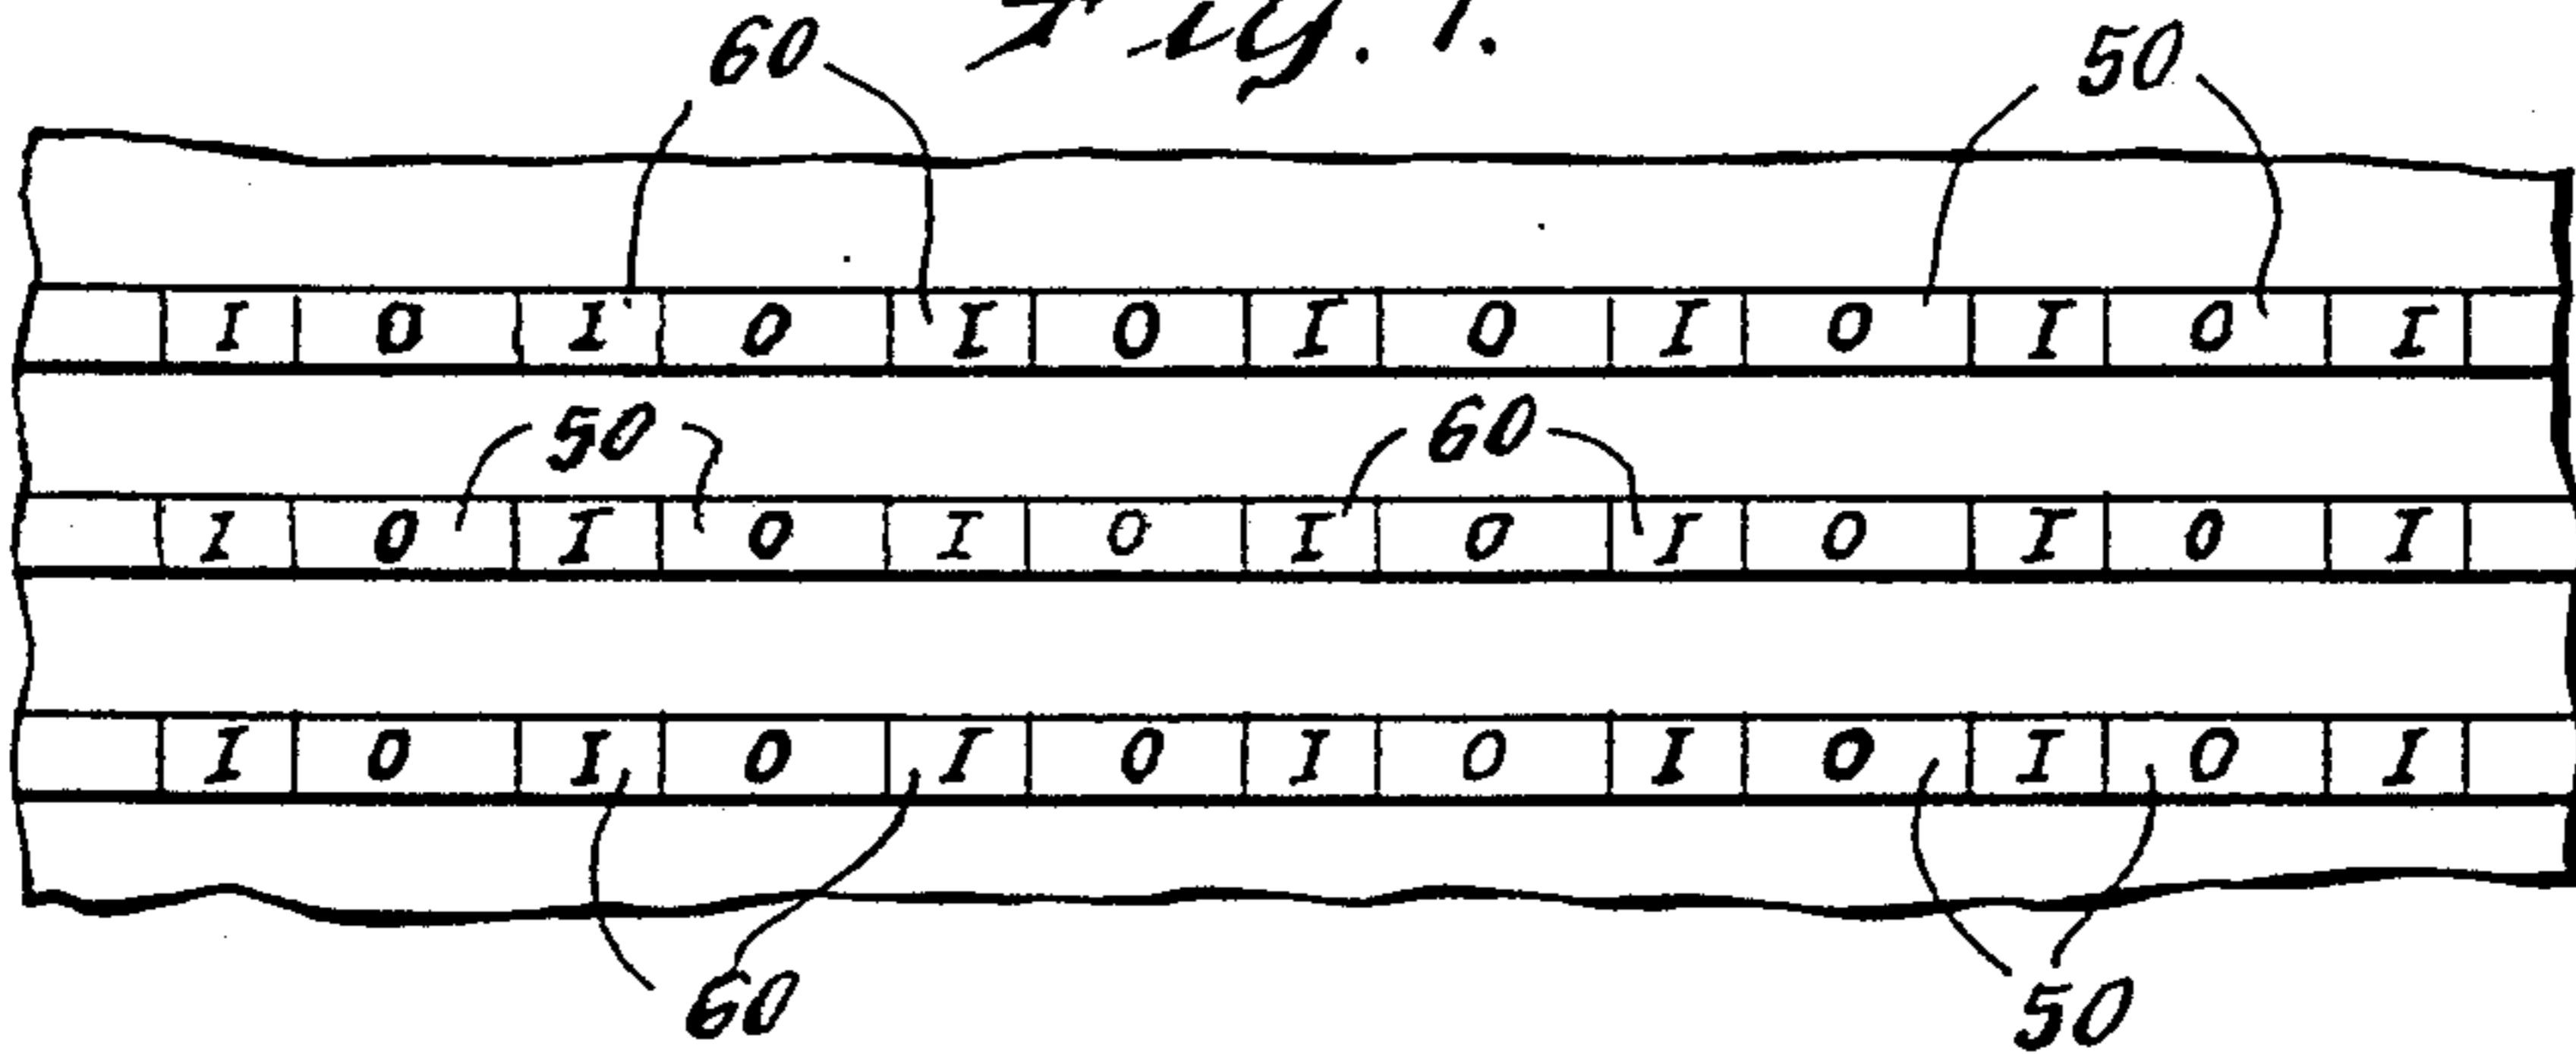 Fig. 1.
60 50
I O I O I O I O I O I O I
50 60
I O I O I O I O I O I O I
I O I O I O I O I O I O I
60 50